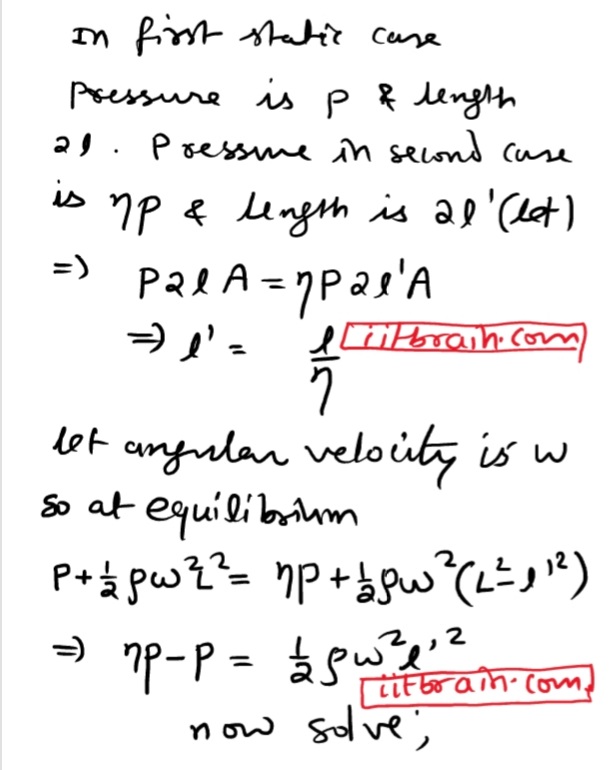 In first static case
Pressure is P & length
2l. Pressure in second case
is ηP & length is 2l'(let)
=> P2lA = ηP2l'A
=> l' = l/η iitbrain.com
let angular velocity is w
so at equilibrium
P+½ρω²L² = ηP+½ρω²(L²-l'²)
=> ηP-P = ½ρω²l'²
iitbrain.com
now solve;